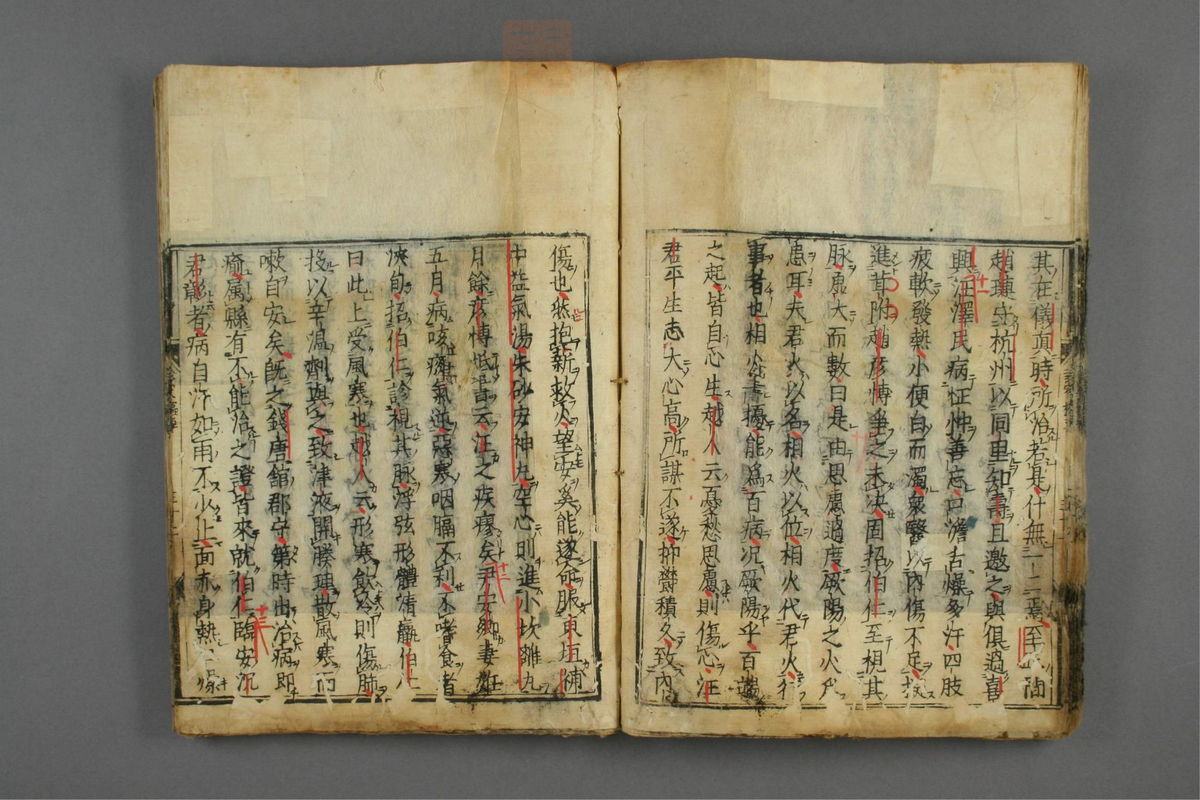 其在儀真時所治者具什無一二焉至
趙璉守杭州以同里知壽且邀之與俱過喜
興汪澤民病怔忡善忘口澹舌燥多汗四肢
疲軟發熱小便白而濁衆醫以內傷不足擬
進茸附趙彦博爭之未決固招伯仁至視其
脉虛大而數曰是由思慮過度厥陽之火為
患耳夫君火以名相火以位相火代君火行
事者也相火一擾能為百病况厥陽乎百端
之起皆自心生越人云憂愁思慮則傷心汪
君平生志大心高所謀不遂抑欝積久致內
傷也然抱薪救火望安奚能遂命服東垣補
中益氣湯朱砂安神丸空心則進小坎離丸
月餘彦博抵書云汪之疾瘳矣尹安卿妻妊
五月病咳痰氣逆惡寒咽膈不利不嗜食者
浹旬招伯仁診視其脉浮弦形體清羸伯仁
曰此上受風寒也越人云形寒飲冷則傷肺
投以辛温劑與之致津液開腠理散風寒而
嗽自安矣既之錢唐館郡守第時出治病即
瘉属縣有不能治之證皆來就伯仁臨安沈
君彰者病自汗如雨不少止面赤身熱